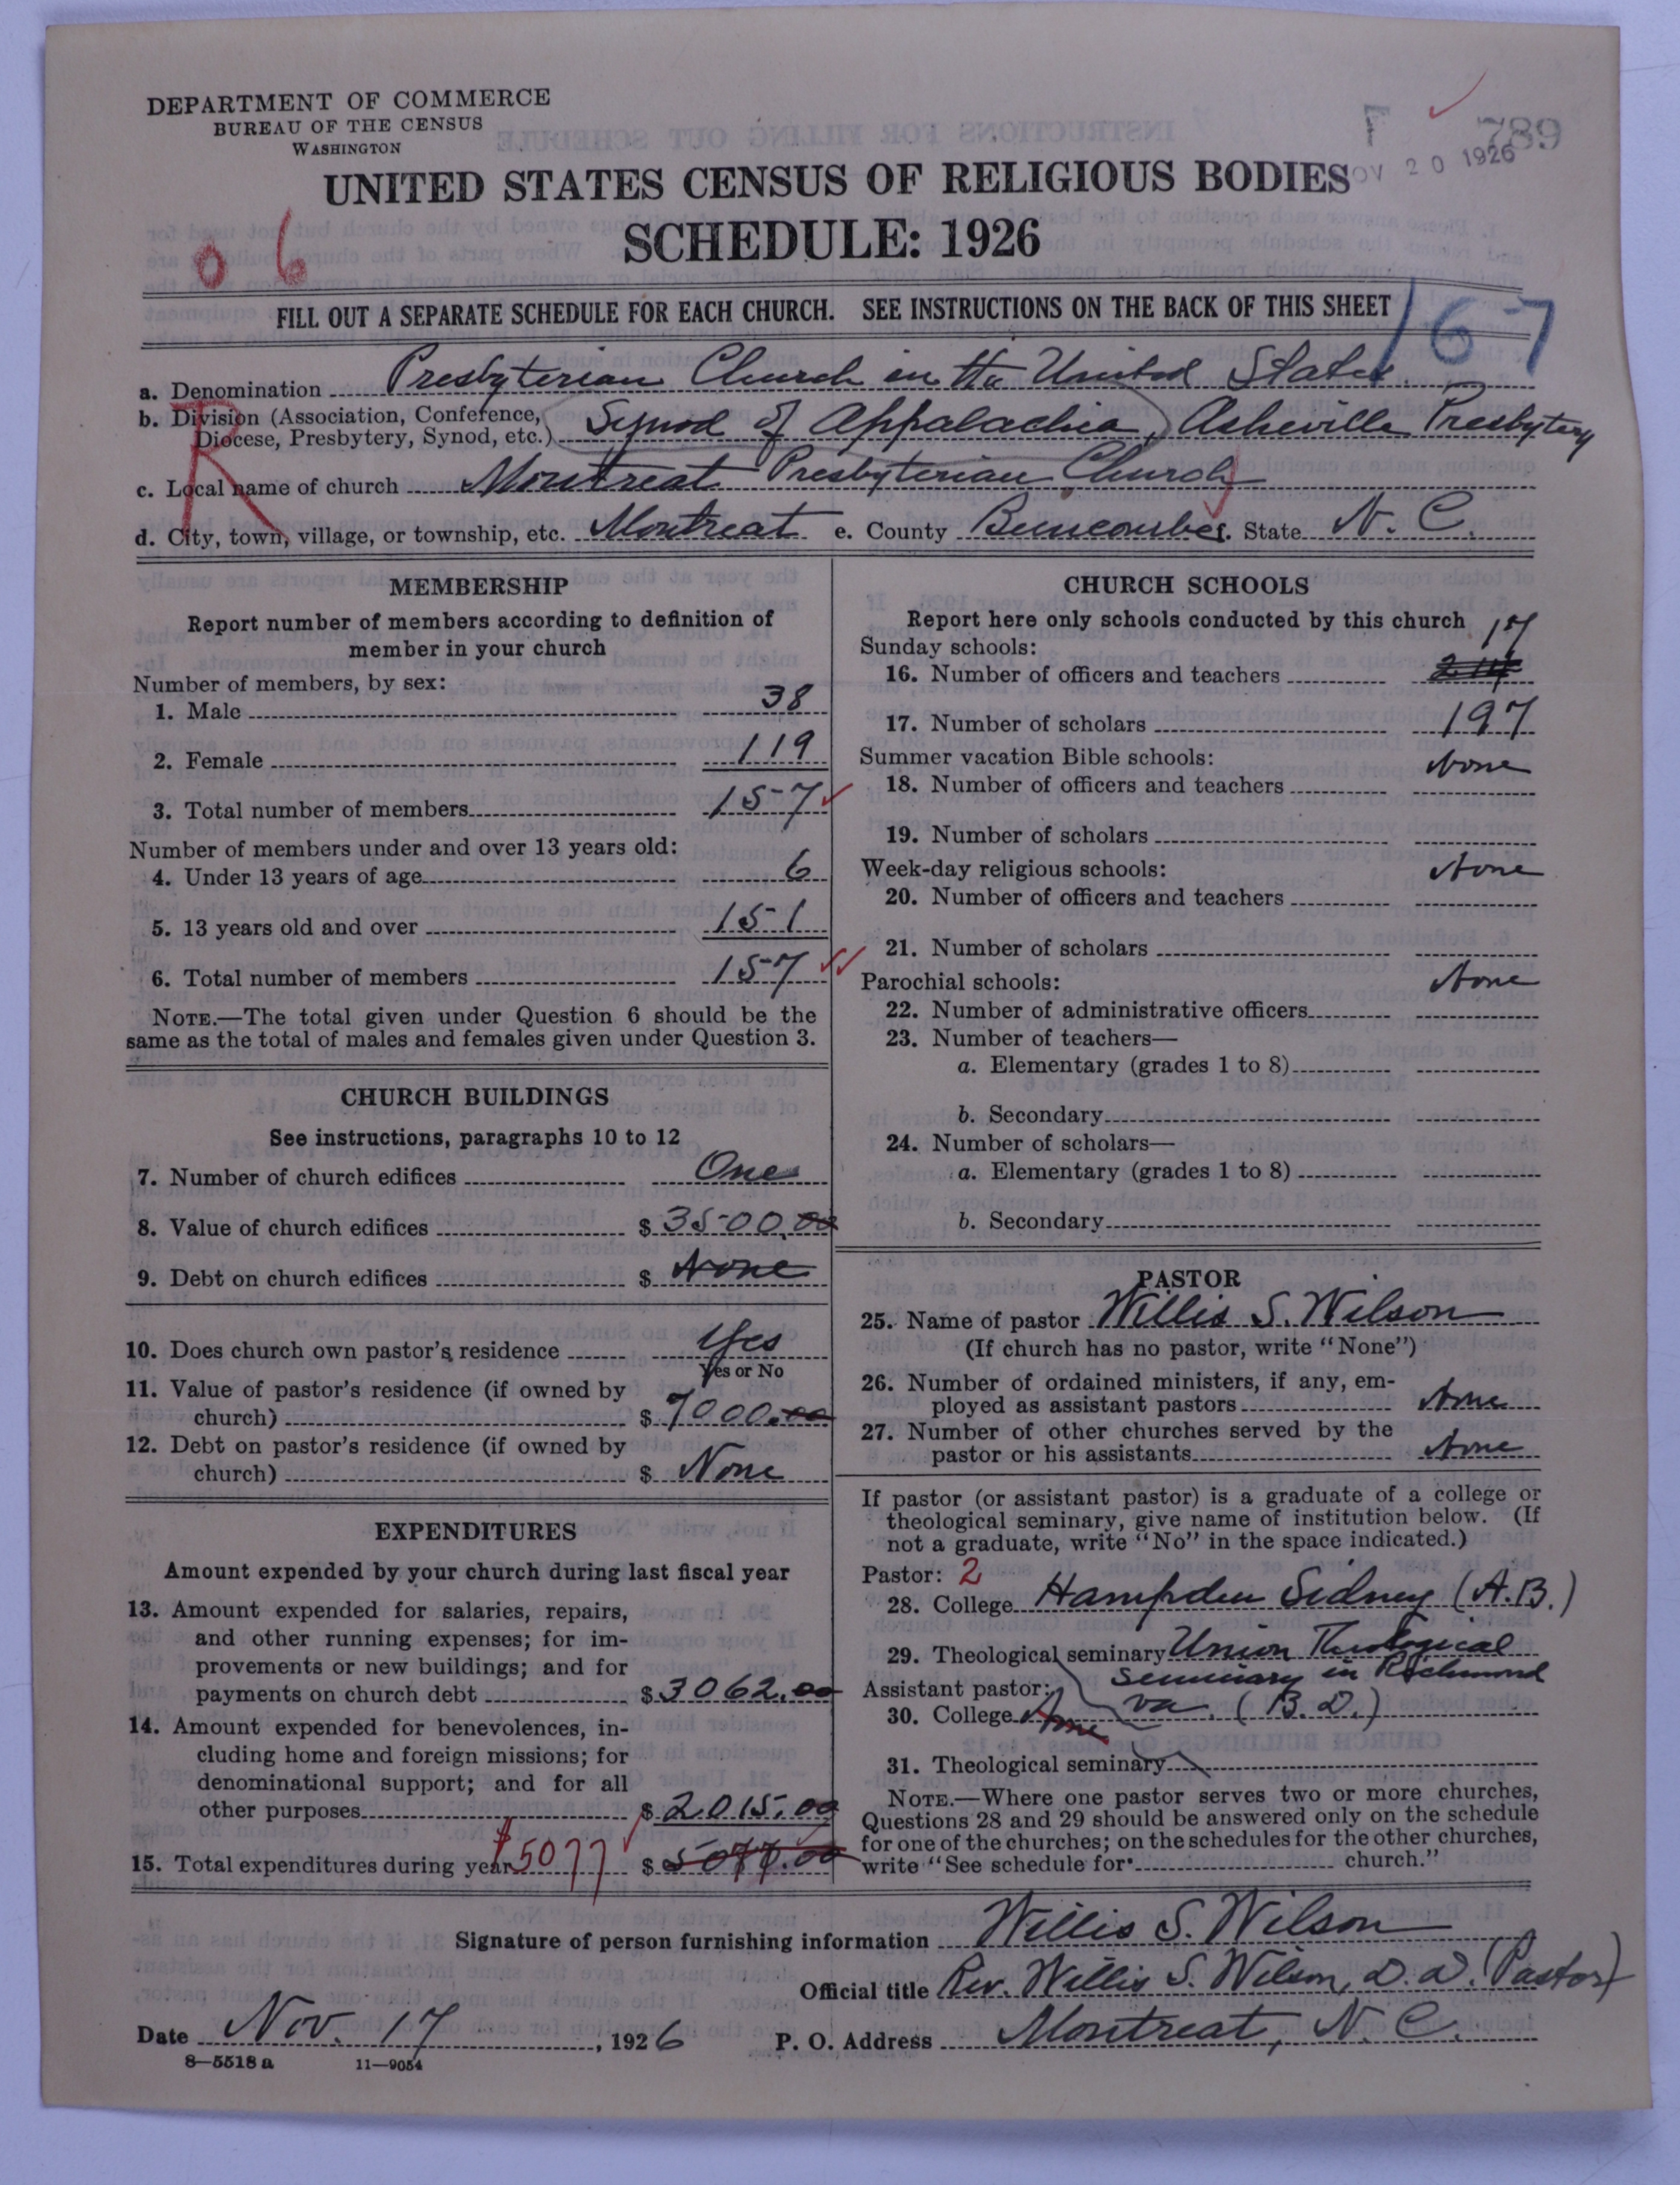 DEPARTMENT OF COMMERCE
BUREAU OF THE CENSUS
WASHINGTON
F
789
NOV 20 1926
UNITED STATES CENSUS OF RELIGIOUS BODIES
SCHEDULE: 1926
0 6
FILL OUT A SEPARATE SCHEDULE FOR EACH CHURCH. SEE INSTRUCTIONS ON THE BACK OF THIS SHEET
167
a. Denomination Presbyterian Church in the United States.
b. Division (Association, Conference, Diocese, Presbytery, Synod, etc.) Synod of Appalachia, Asheville Presbytery
R
c. Local name of church Montreat Presbyterian Church
d. City, town, village, or township, etc. Montreat e. County Buncombe f. State N. C.
MEMBERSHIP
Report number of members according to definition of
member in your church
Number of members, by sex:
1. Male 38
2. Female 119
3. Total number of members 157
Number of members under and over 13 years old:
4. Under 13 years of age 6
5. 13 years old and over 151
6. Total number of members 157
NOTE.—The total given under Question 6 should be the
same as the total of males and females given under Question 3.
CHURCH BUILDINGS
See instructions, paragraphs 10 to 12
7. Number of church edifices One
8. Value of church edifices $3500.00
9. Debt on church edifices $ None
10. Does church own pastor's residence Yes
Yes or No
11. Value of pastor's residence (if owned by
church) $7000.00
12. Debt on pastor's residence (if owned by
church) $ None
EXPENDITURES
Amount expended by your church during last fiscal year
13. Amount expended for salaries, repairs,
and other running expenses; for im-
provements or new buildings; and for
payments on church debt $3062.00
14. Amount expended for benevolences, in-
cluding home and foreign missions; for
denominational support; and for all
other purposes $2015.00
15. Total expenditures during year $5077 $5077.00
CHURCH SCHOOLS
Report here only schools conducted by this church
Sunday schools:
17
16. Number of officers and teachers
17. Number of scholars 197
Summer vacation Bible schools: None
18. Number of officers and teachers
19. Number of scholars
Week-day religious schools: None
20. Number of officers and teachers
21. Number of scholars
Parochial schools: None
22. Number of administrative officers
23. Number of teachers—
a. Elementary (grades 1 to 8)
b. Secondary
24. Number of scholars—
a. Elementary (grades 1 to 8)
b. Secondary
PASTOR
25. Name of pastor Willis S. Wilson
(If church has no pastor, write "None")
26. Number of ordained ministers, if any, em-
ployed as assistant pastors None
27. Number of other churches served by the
pastor or his assistants None
If pastor (or assistant pastor) is a graduate of a college or
theological seminary, give name of institution below. (If
not a graduate, write "No" in the space indicated.)
Pastor: 2
28. College Hampden Sidney (A.B.)
29. Theological seminary Union Theological
Seminary in Richmond
Assistant pastor: Va. (B.D.)
30. College None
31. Theological seminary
NOTE.—Where one pastor serves two or more churches,
Questions 28 and 29 should be answered only on the schedule
for one of the churches; on the schedules for the other churches,
write "See schedule for church."
Signature of person furnishing information Willis S. Wilson
Official title Rev. Willis S. Wilson, D.D. (Pastor)
Date Nov. 17, 1926 P. O. Address Montreat, N. C.
8—5518 a 11—9054